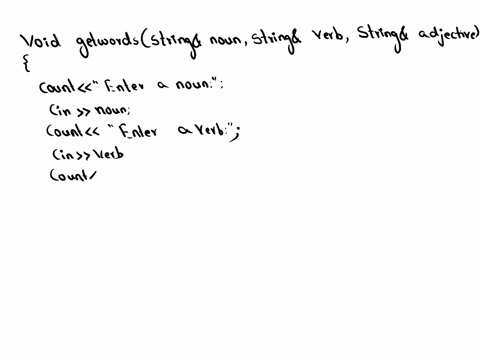 Void getwords(String& noun, String& Verb, String& adjective)
{
Count<<"Enter a noun:";
Cin >> noun;
Count<< "Enter a Verb:";
Cin>>Verb
Count<